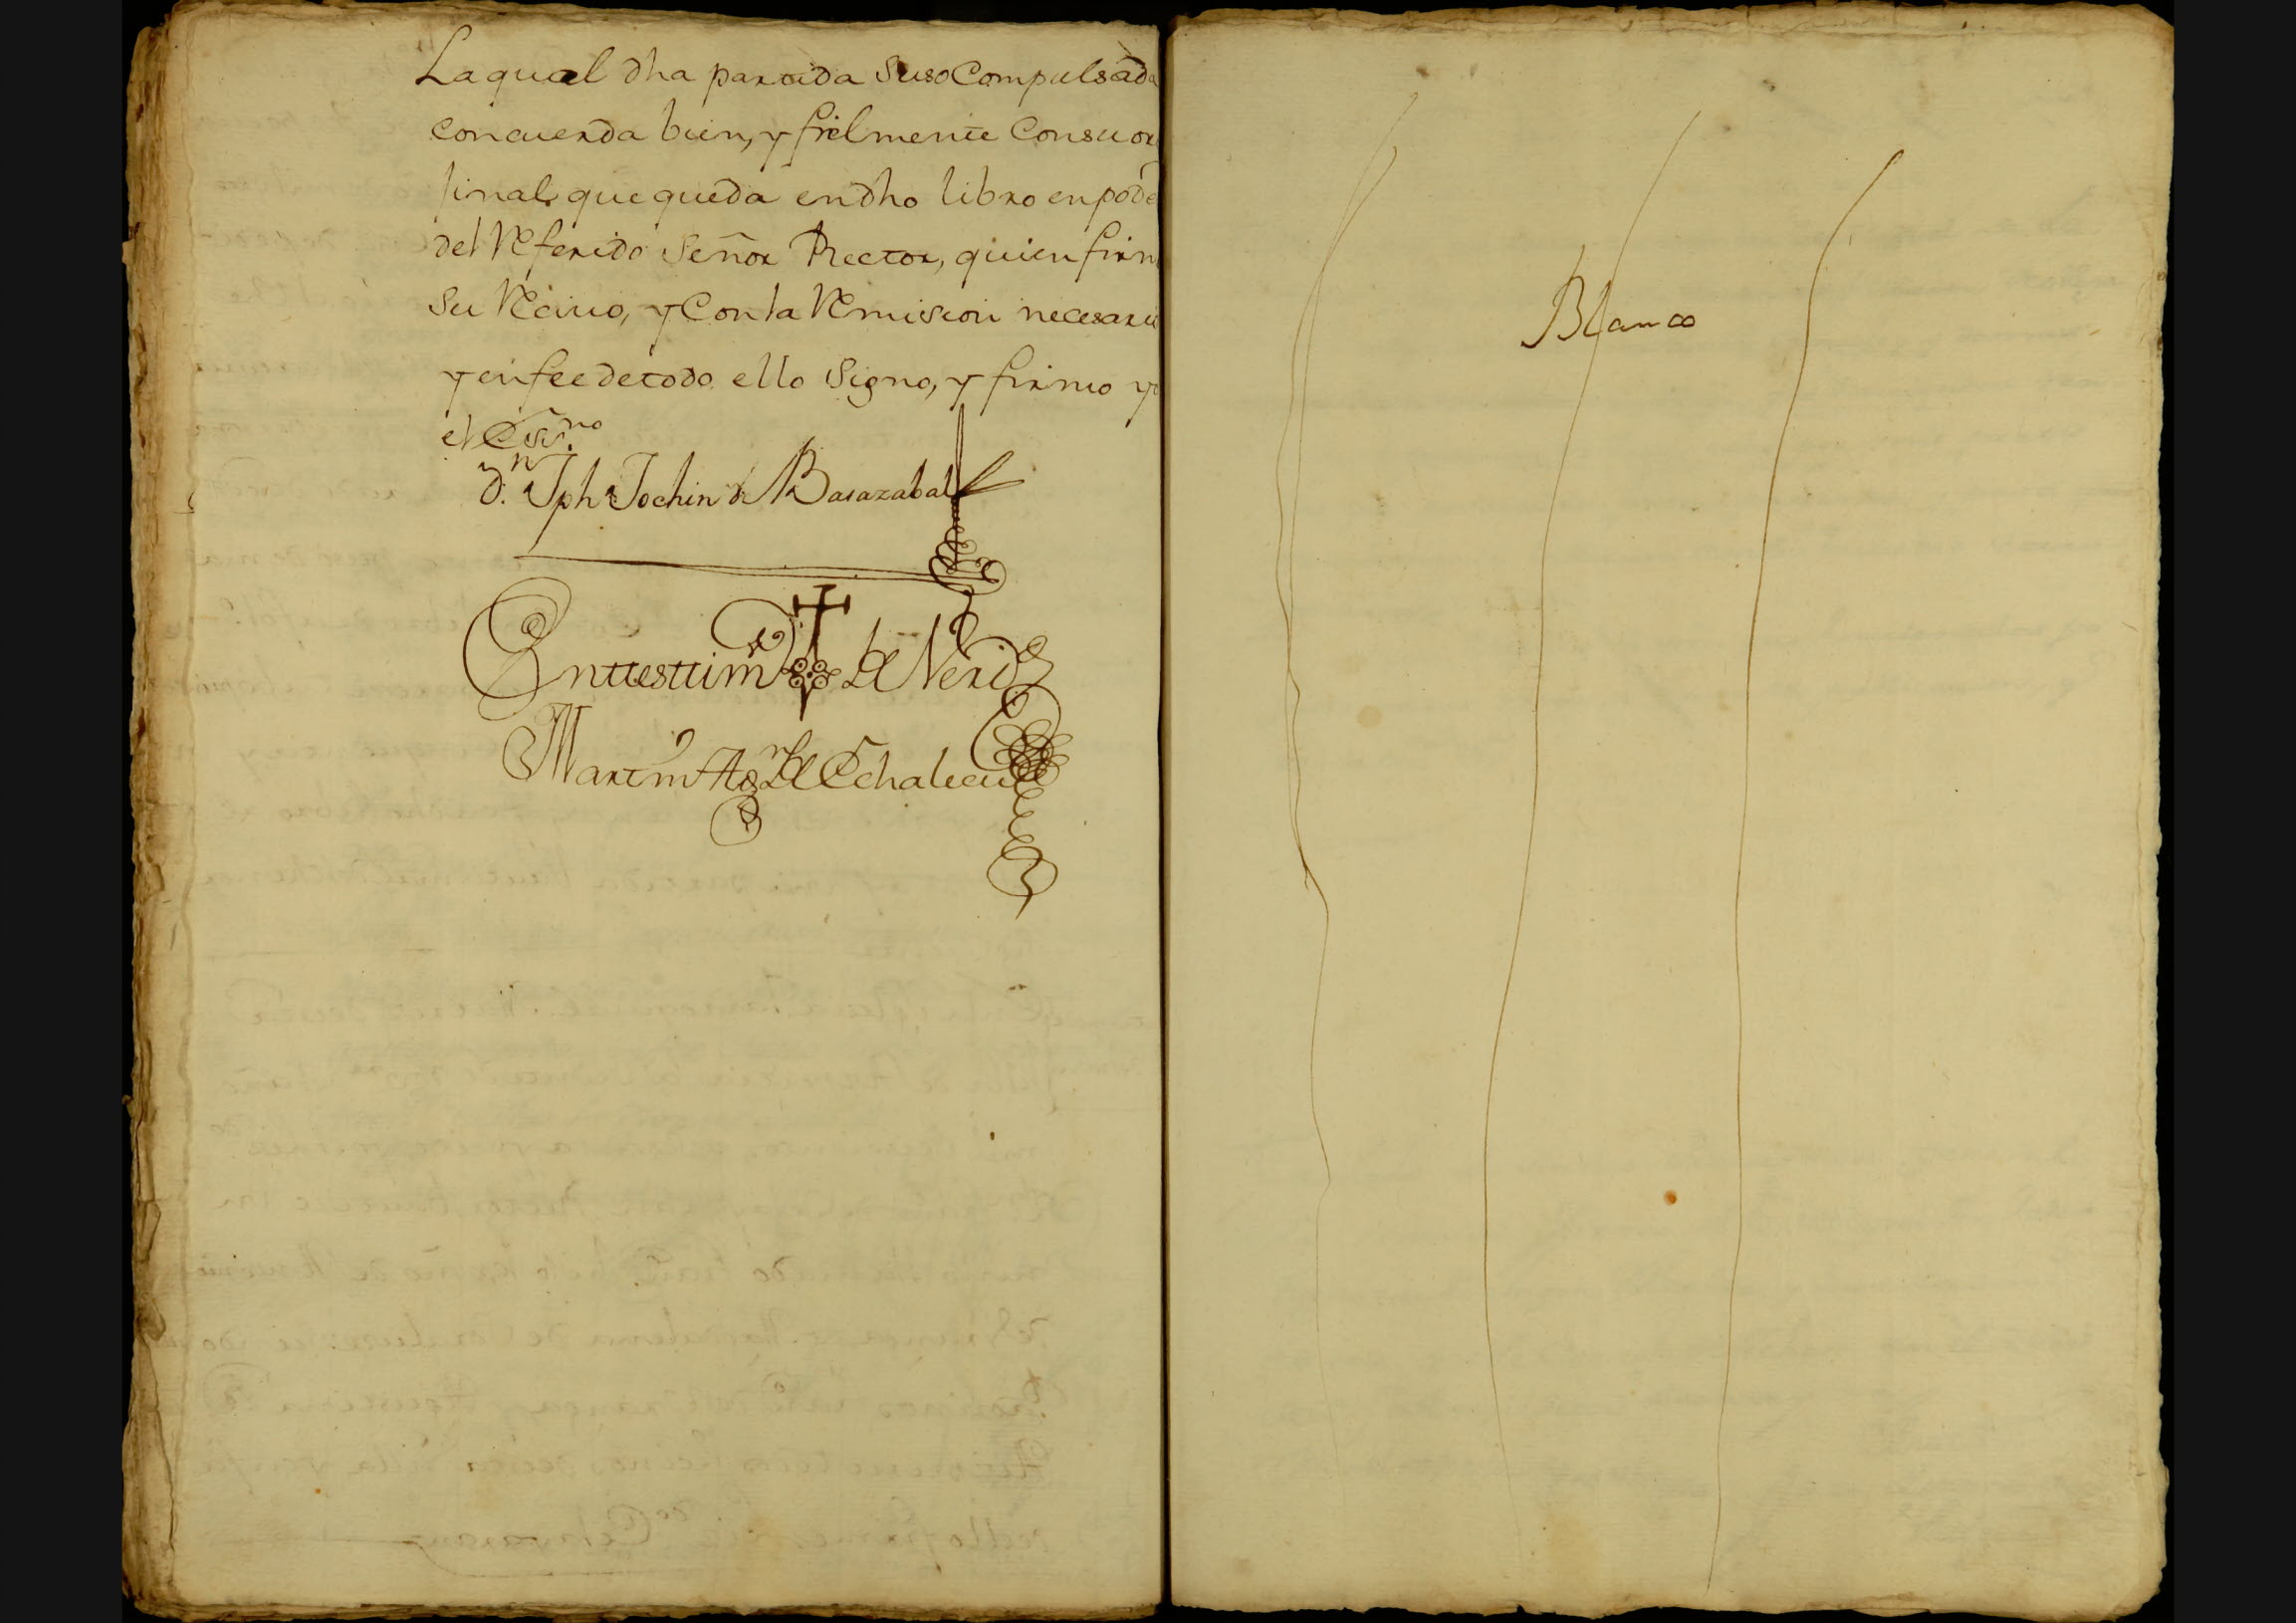 La qual dha partida suso Compulsada
concuerda bien, y fielmente Con su ori
jinal que queda en dho libro en pode
del Referido Señor Rector, quien firm
su Recivo, y Con la Remision necesaria
y en fee de todo ello Signo, y firmo yo
el Essno
Dn Iph Jochin de Basazabal
En testtimo de Verd
Martin Agn de Echalecu
Blanco